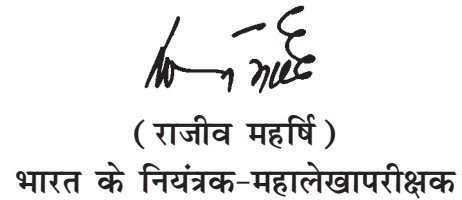 ( राजीव महर्षि )
भारत के नियंत्रक-महालेखापरीक्षक